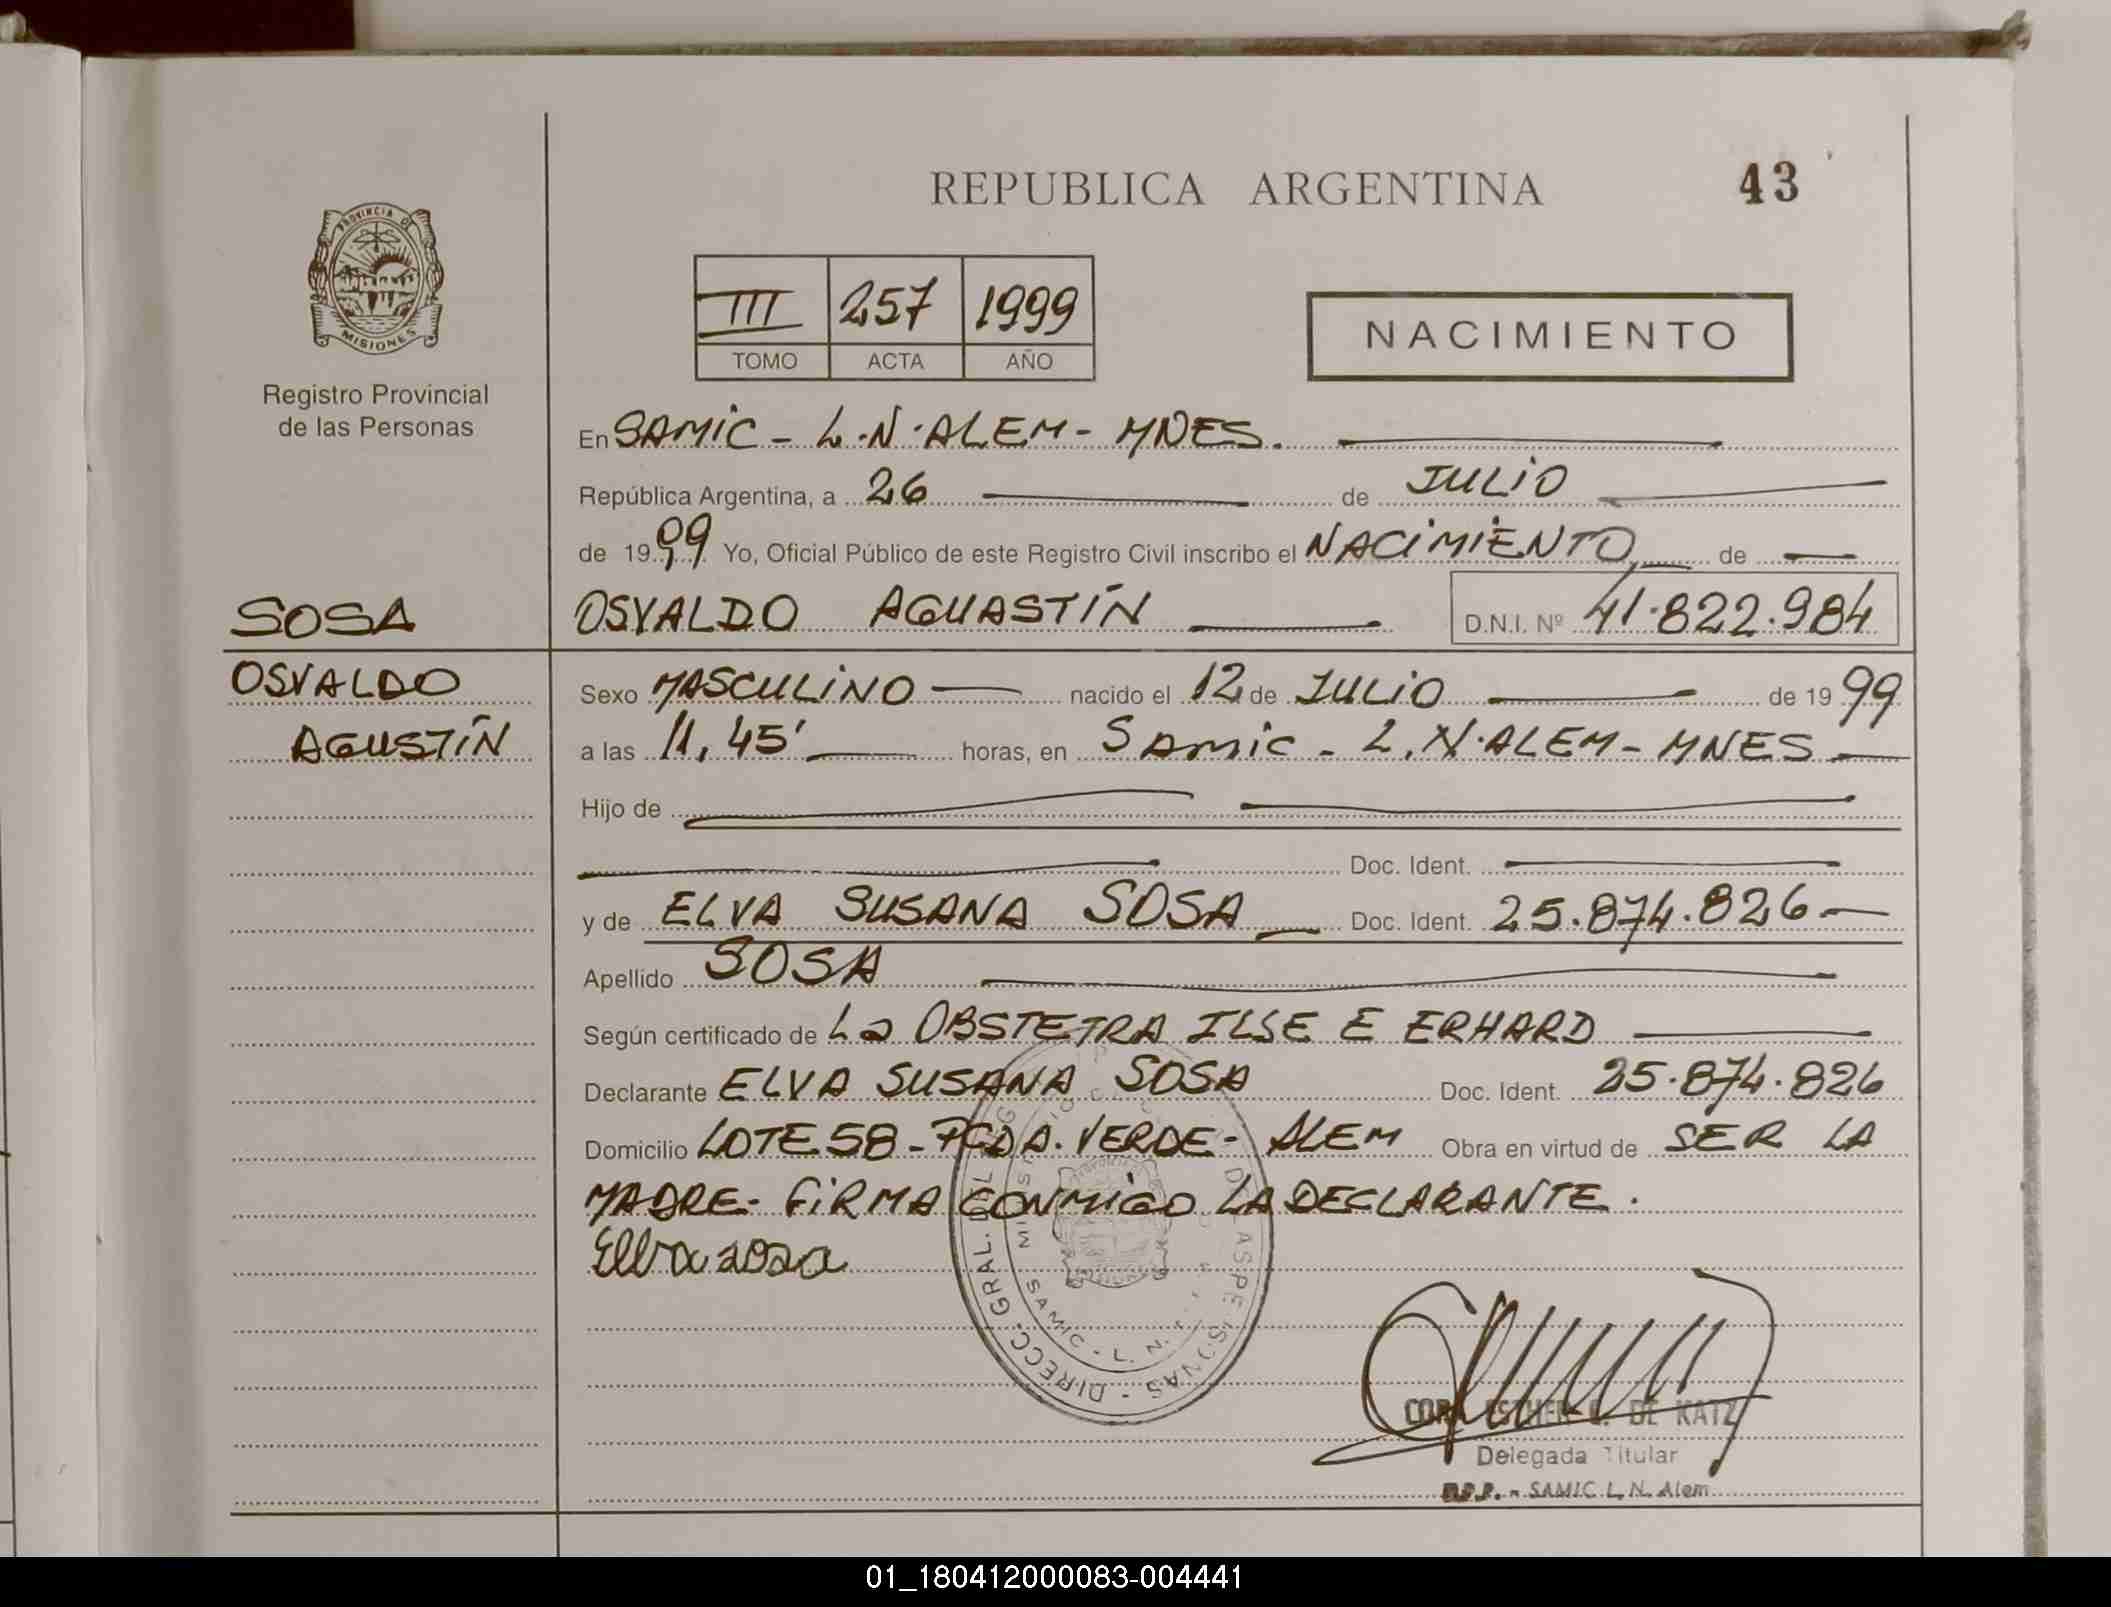 REPUBLICA ARGENTINA
43
PROVINCIA DE
MISIONES
Registro Provincial
de las Personas
III 257 1999
TOMO ACTA AÑO
NACIMIENTO
En SAMIC - L.N. ALEM - MNES.
República Argentina, a 26 de JULIO
de 1999 Yo, Oficial Público de este Registro Civil inscribo el NACIMIENTO de
SOSA
OSVALDO AGUASTÍN D.N.I. Nº 41.822.984
OSVALDO
AGUSTÍN
Sexo MASCULINO nacido el 12 de JULIO de 1999
a las 11,45' horas, en SAMIC - L.N. ALEM - MNES
Hijo de
Doc. Ident.
y de ELVA SUSANA SOSA Doc. Ident. 25.874.826
Apellido SOSA
Según certificado de La OBSTETRA ILSE E ERHARD
Declarante ELVA SUSANA SOSA Doc. Ident. 25.874.826
Domicilio LOTE 58 - PCDA. VERDE - ALEM Obra en virtud de SER LA
MADRE - FIRMA CONMIGO LA DECLARANTE.
Elva sosa
DIRECC. GRAL. DEL
SAMIC - L. N.
CORA ESTHER DE KATZ
Delegada Titular
SAMIC L. N. Alem
01_180412000083-004441